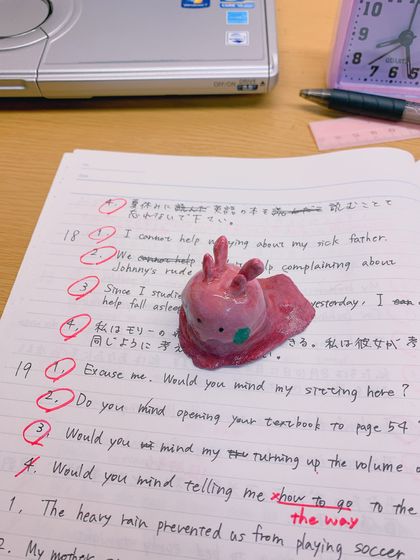 OFF/ON
10
9
8
7
6
5
4. 夏休みに 英語の本を 読むことを
忘れないで下さい。
18 1. I cannot help about my sick father.
2. We help complaining about
Johnny's rude
3. Since I yesterday, I
help fall
4. 私はモリーの る。私は彼女が
同じように
19 1. Excuse me. Would you mind my sitting here?
2. Do you mind opening your textbook to page 54
3. Would you mind my turning up the volume
4. Would you mind telling me how to go to the
the way
1. The heavy rain prevented us from playing soccer
2. My mother